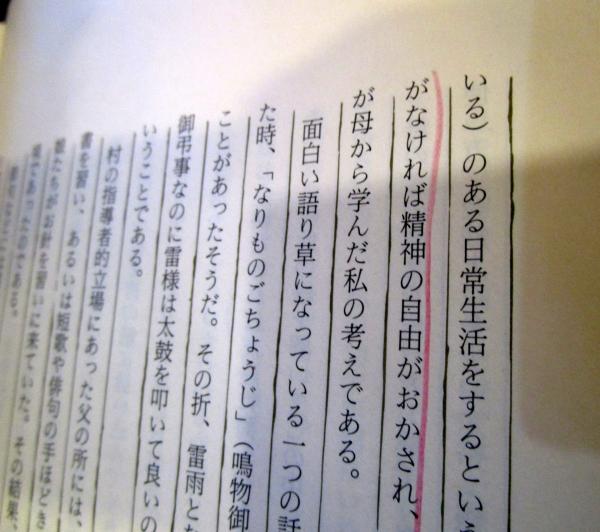 いる）のある日常生活をするという
がなければ精神の自由がおかされ、
が母から学んだ私の考えである。
面白い語り草になっている一つの話
た時、「なりものごちょうじ」（鳴物御
ことがあったそうだ。その折、雷雨とな
御弔事なのに雷様は太鼓を叩いて良いの
いうことである。
村の指導者的立場にあった父の所には、
書を習い、あるいは短歌や俳句の手ほどき
娘たちがお針を習いに来ていた。その結果、
であったのである。